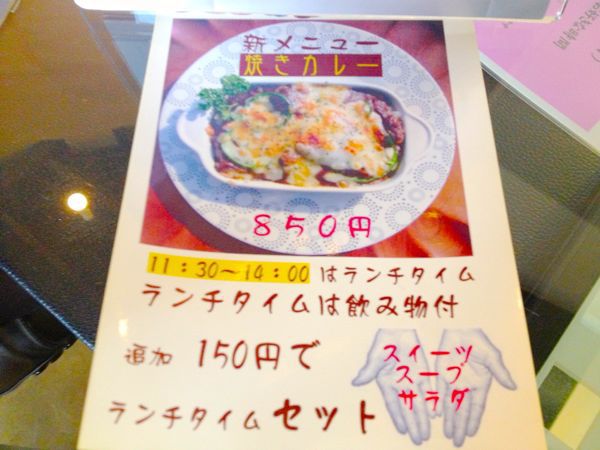 新メニュー
焼きカレー
850円
11:30～14:00はランチタイム
ランチタイムは飲み物付
追加 150円で
ランチタイムセット
スイーツ
スープ
サラダ